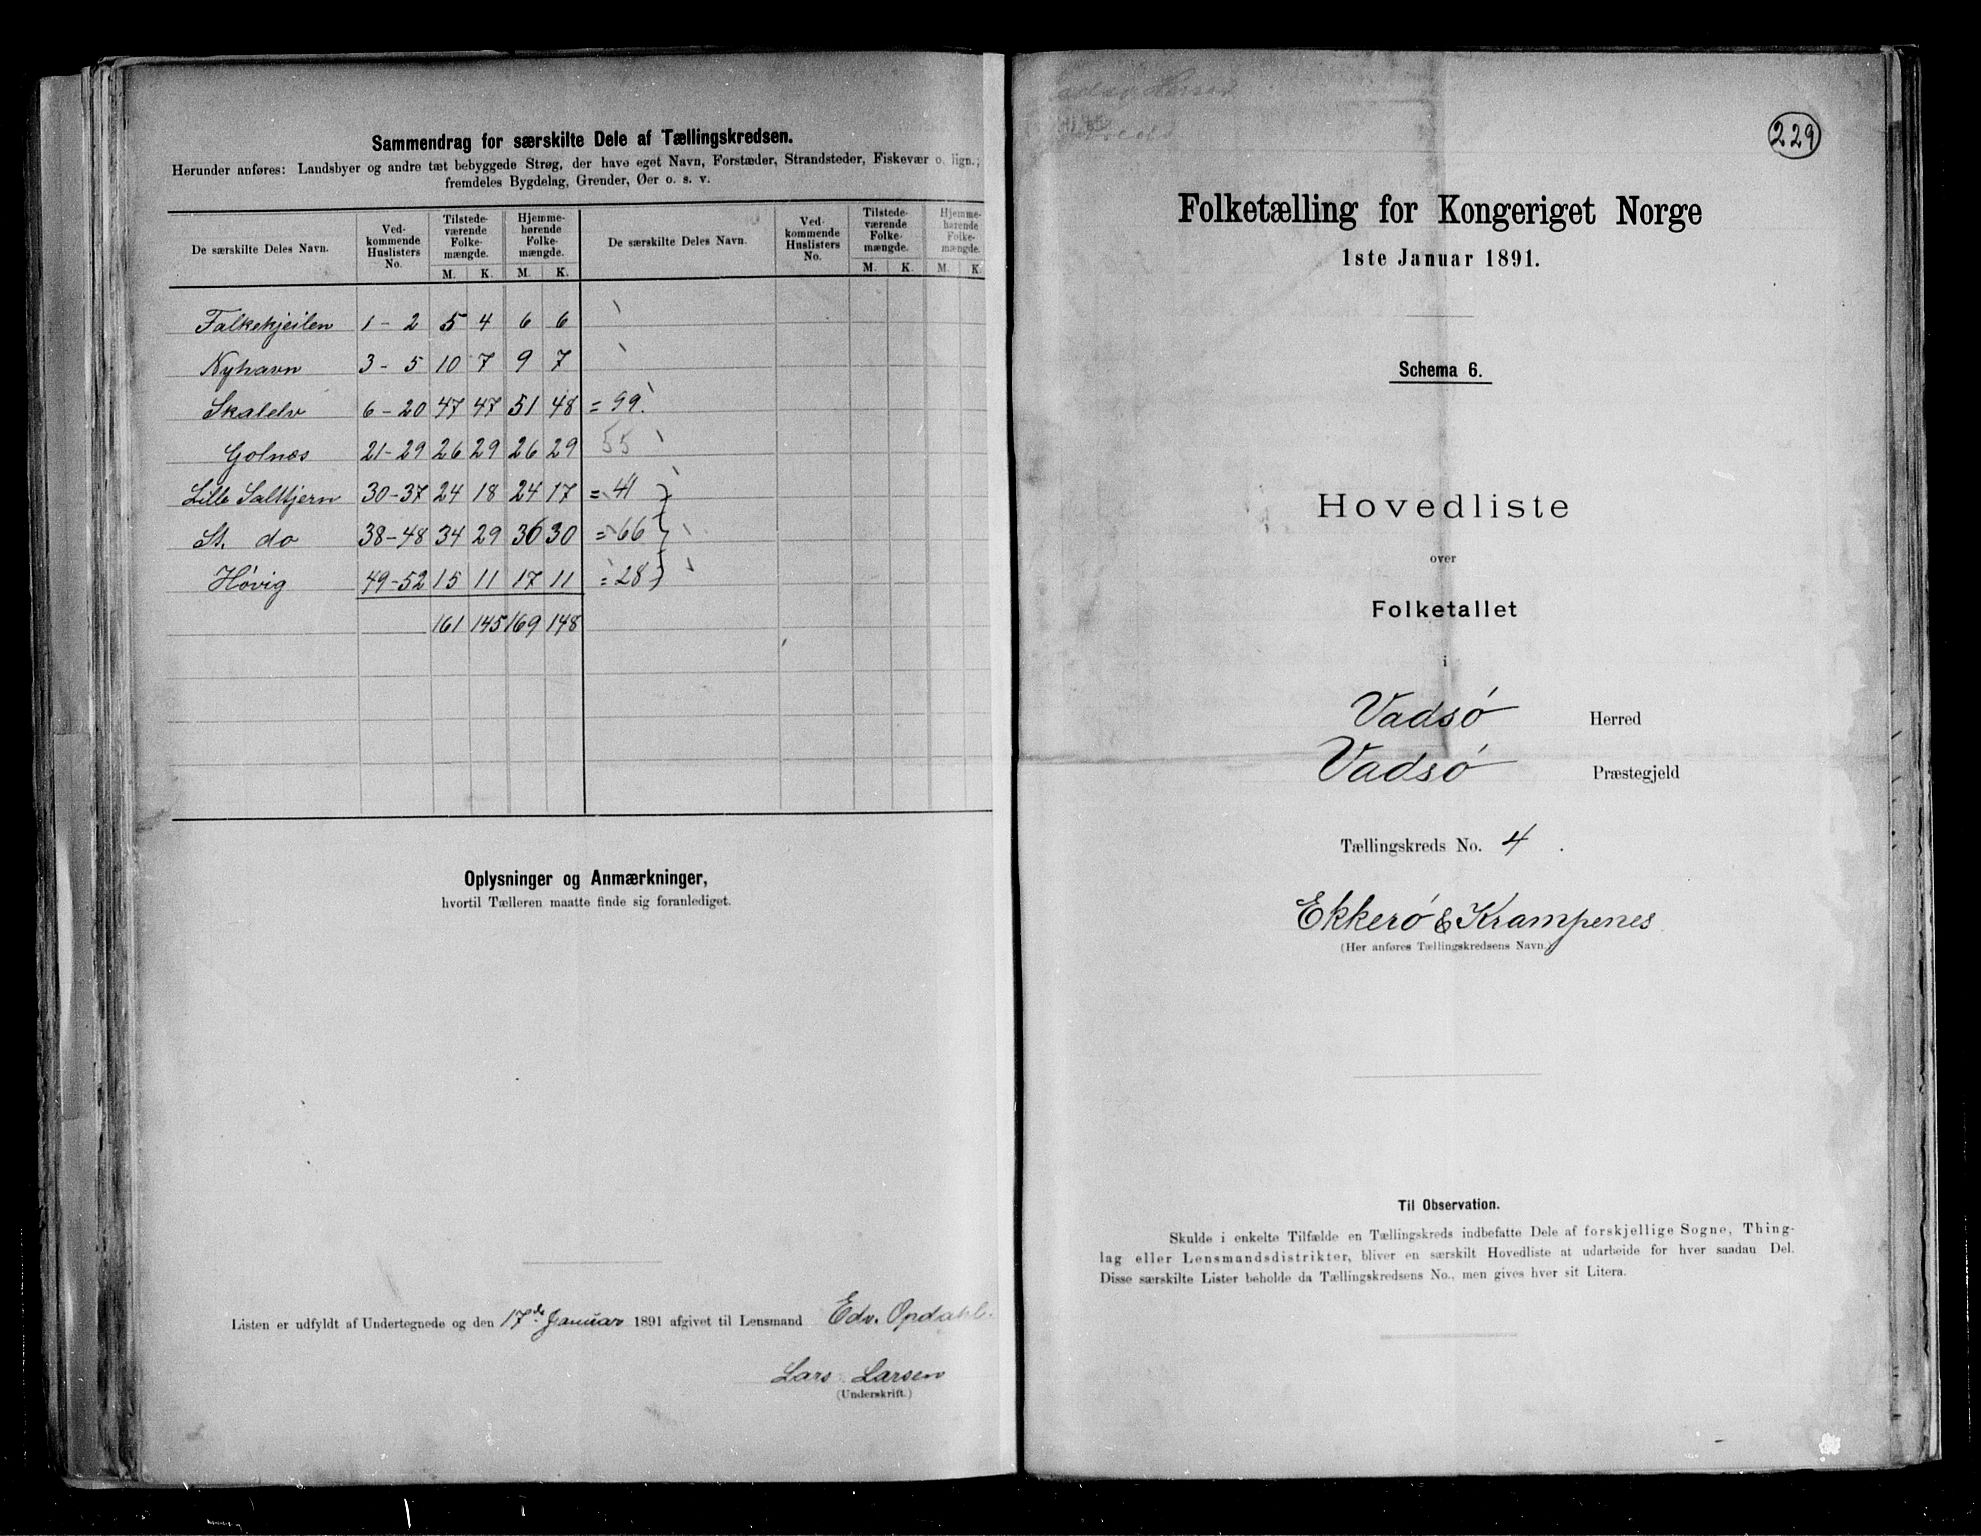 Sammendrag for særskilte Dele af Tællingskredsen.
Herunder anføres: Landsbyer og andre tæt bebyggede Strøg, der have eget Navn, Forstæder, Strandsteder, Fiskevær o. lign.;
fremdeles Bygdelag, Grender, Øer o. s. v.
De særskilte Deles Navn. Vedkommende Huslisters No. Tilstedeværende Folkemængde. M. K. Hjemmehørende Folkemængde. M. K. De særskilte Deles Navn. Vedkommende Huslisters No. Tilstedeværende Folkemængde. M. K. Hjemmehørende Folkemængde. M. K.
Falkekjeilen 1 - 2 5 4 6 6
Nyhavn 3 - 5 10 7 9 7
Skalelv 6 - 20 47 47 51 48 = 99.
Golnæs 21 - 29 26 29 26 29 55
Lille Saltjern 30 - 37 24 18 24 17 = 41
St. do 38 - 48 34 29 36 30 = 66
Høvig 49 - 52 15 11 17 11 = 28
161 145 169 148
Oplysninger og Anmærkninger,
hvortil Tælleren maatte finde sig foranlediget.
Listen er udfyldt af Undertegnede og den 17de Januar 1891 afgivet til Lensmand Edv. Opdahl.
Lars Larsen
(Underskrift.)
229
Folketælling for Kongeriget Norge
1ste Januar 1891.
Schema 6.
Hovedliste
over
Folketallet
i
Vadsø Herred
Vadsø Præstegjeld
Tællingskreds No. 4.
Ekkerø & Krampenes
(Her anføres Tællingskredsens Navn.)
Til Observation.
Skulde i enkelte Tilfælde en Tællingskreds indbefatte Dele af forskjellige Sogne, Thing-
lag eller Lensmandsdistrikter, bliver en særskilt Hovedliste at udarbeide for hver saadan Del.
Disse særskilte Lister beholde da Tællingskredsens No., men gives hver sit Litera.